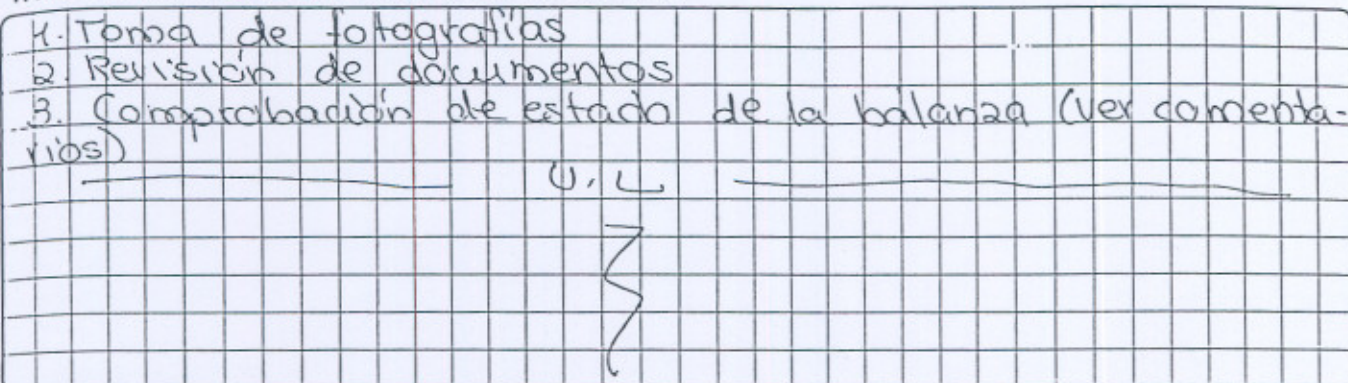 1. Toma de fotografías
2. Revisión de documentos
3. Comprobación de estado de la balanza (ver comenta-
rios)
U.L